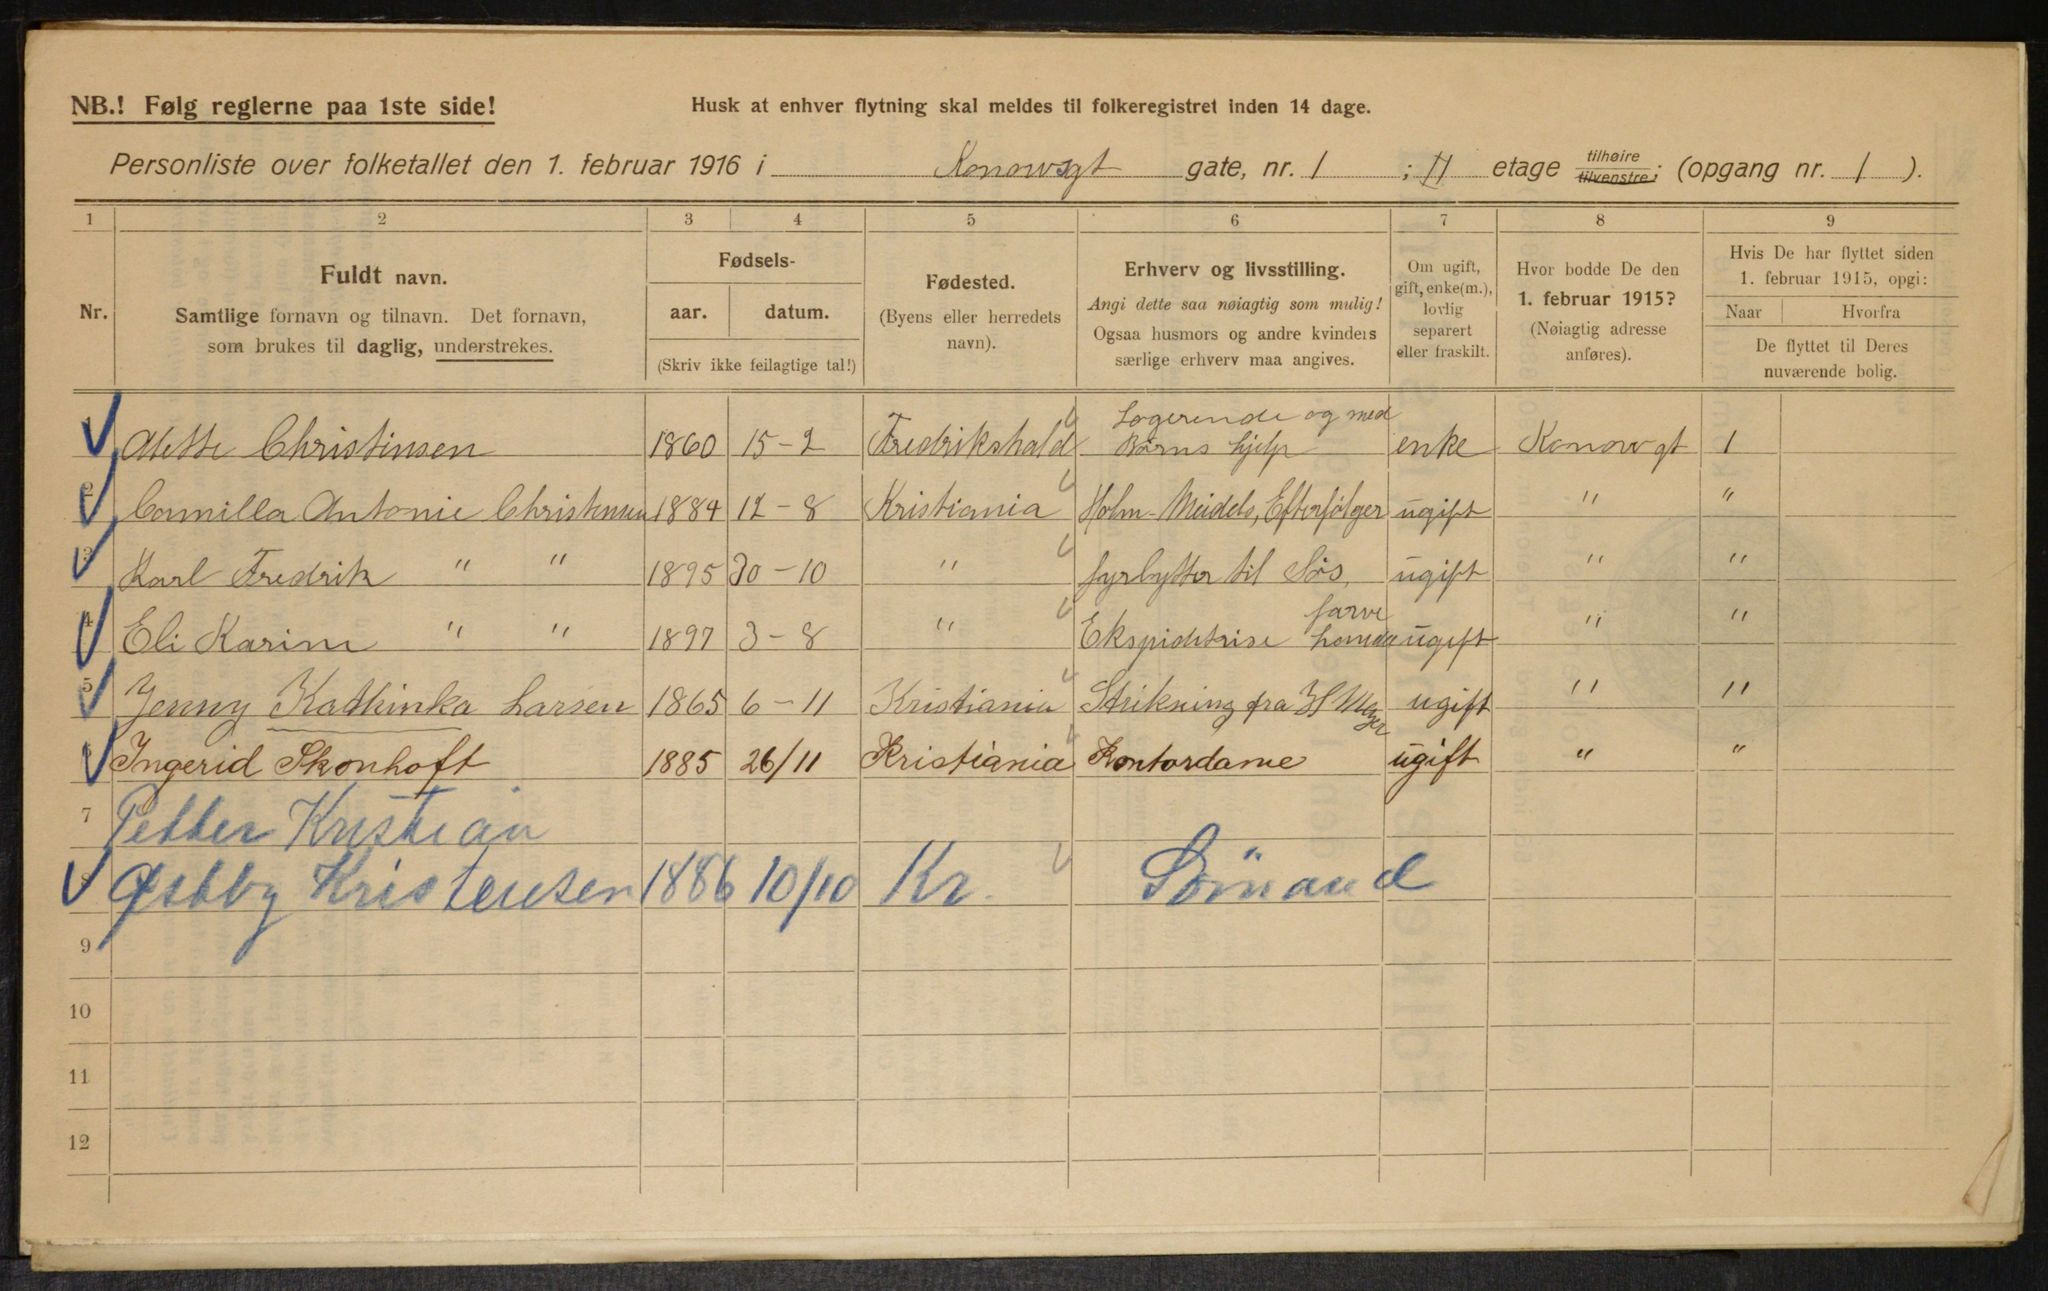 NB.! Følg reglerne paa 1ste side!
Husk at enhver flytning skal meldes til folkeregistret inden 14 dage.
Personliste over folketallet den 1. februar 1916 i Konowsgt gate, nr. 1 ; II etage tilhøire tilvenstre; (opgang nr. 1 ).
1 2 3 4 5 6 7 8 9
Nr.
Fuldt navn.
Samtlige fornavn og tilnavn. Det fornavn,
som brukes til daglig, understrekes.
Fødsels-
aar. datum.
(Skriv ikke feilagtige tal!)
Fødested.
(Byens eller herredets
navn).
Erhverv og livsstilling.
Angi dette saa nøiagtig som mulig!
Ogsaa husmors og andre kvinders
særlige erhverv maa angives.
Om ugift,
gift, enke(m.),
lovlig
separert
eller fraskilt.
Hvor bodde De den
1. februar 1915?
(Nøiagtig adresse
anføres).
Hvis De har flyttet siden
1. februar 1915, opgi:
Naar Hvorfra
De flyttet til Deres
nuværende bolig.
1 Alette Christinsen 1860 15-2 Fredrikshald Logerende og med Børns hjelp enke Konowgt 1
2 Camilla Antonie Christensen 1884 12-8 Kristiania Holm-Meidels, Efterfølger ugift " "
3 Karl Fredrik " " 1895 30-10 " fyrbytter til Søs, ugift " "
4 Eli Karine " " 1897 3-8 " Ekspidetrise farve ugift " "
5 Jenny Kathinka Larsen 1865 6-11 Kristiania Strikning fra ugift " "
6 Ingerid Skonhoft 1885 26/11 Kristiania Kontordame ugift " "
7 Petter Kristian
8 Østby Kristensen 1886 10/10 Kr. Sömand
9
10
11
12